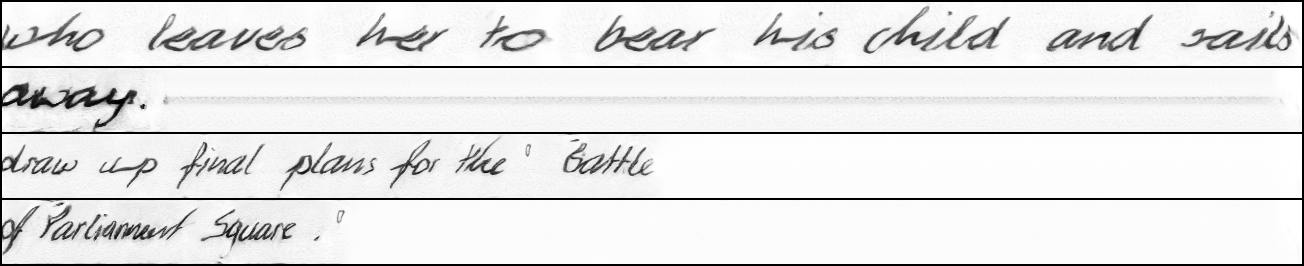 who leaves her to bear his child and sails
away.
draw up final plans for the ' Battle
of Parliament Square . '